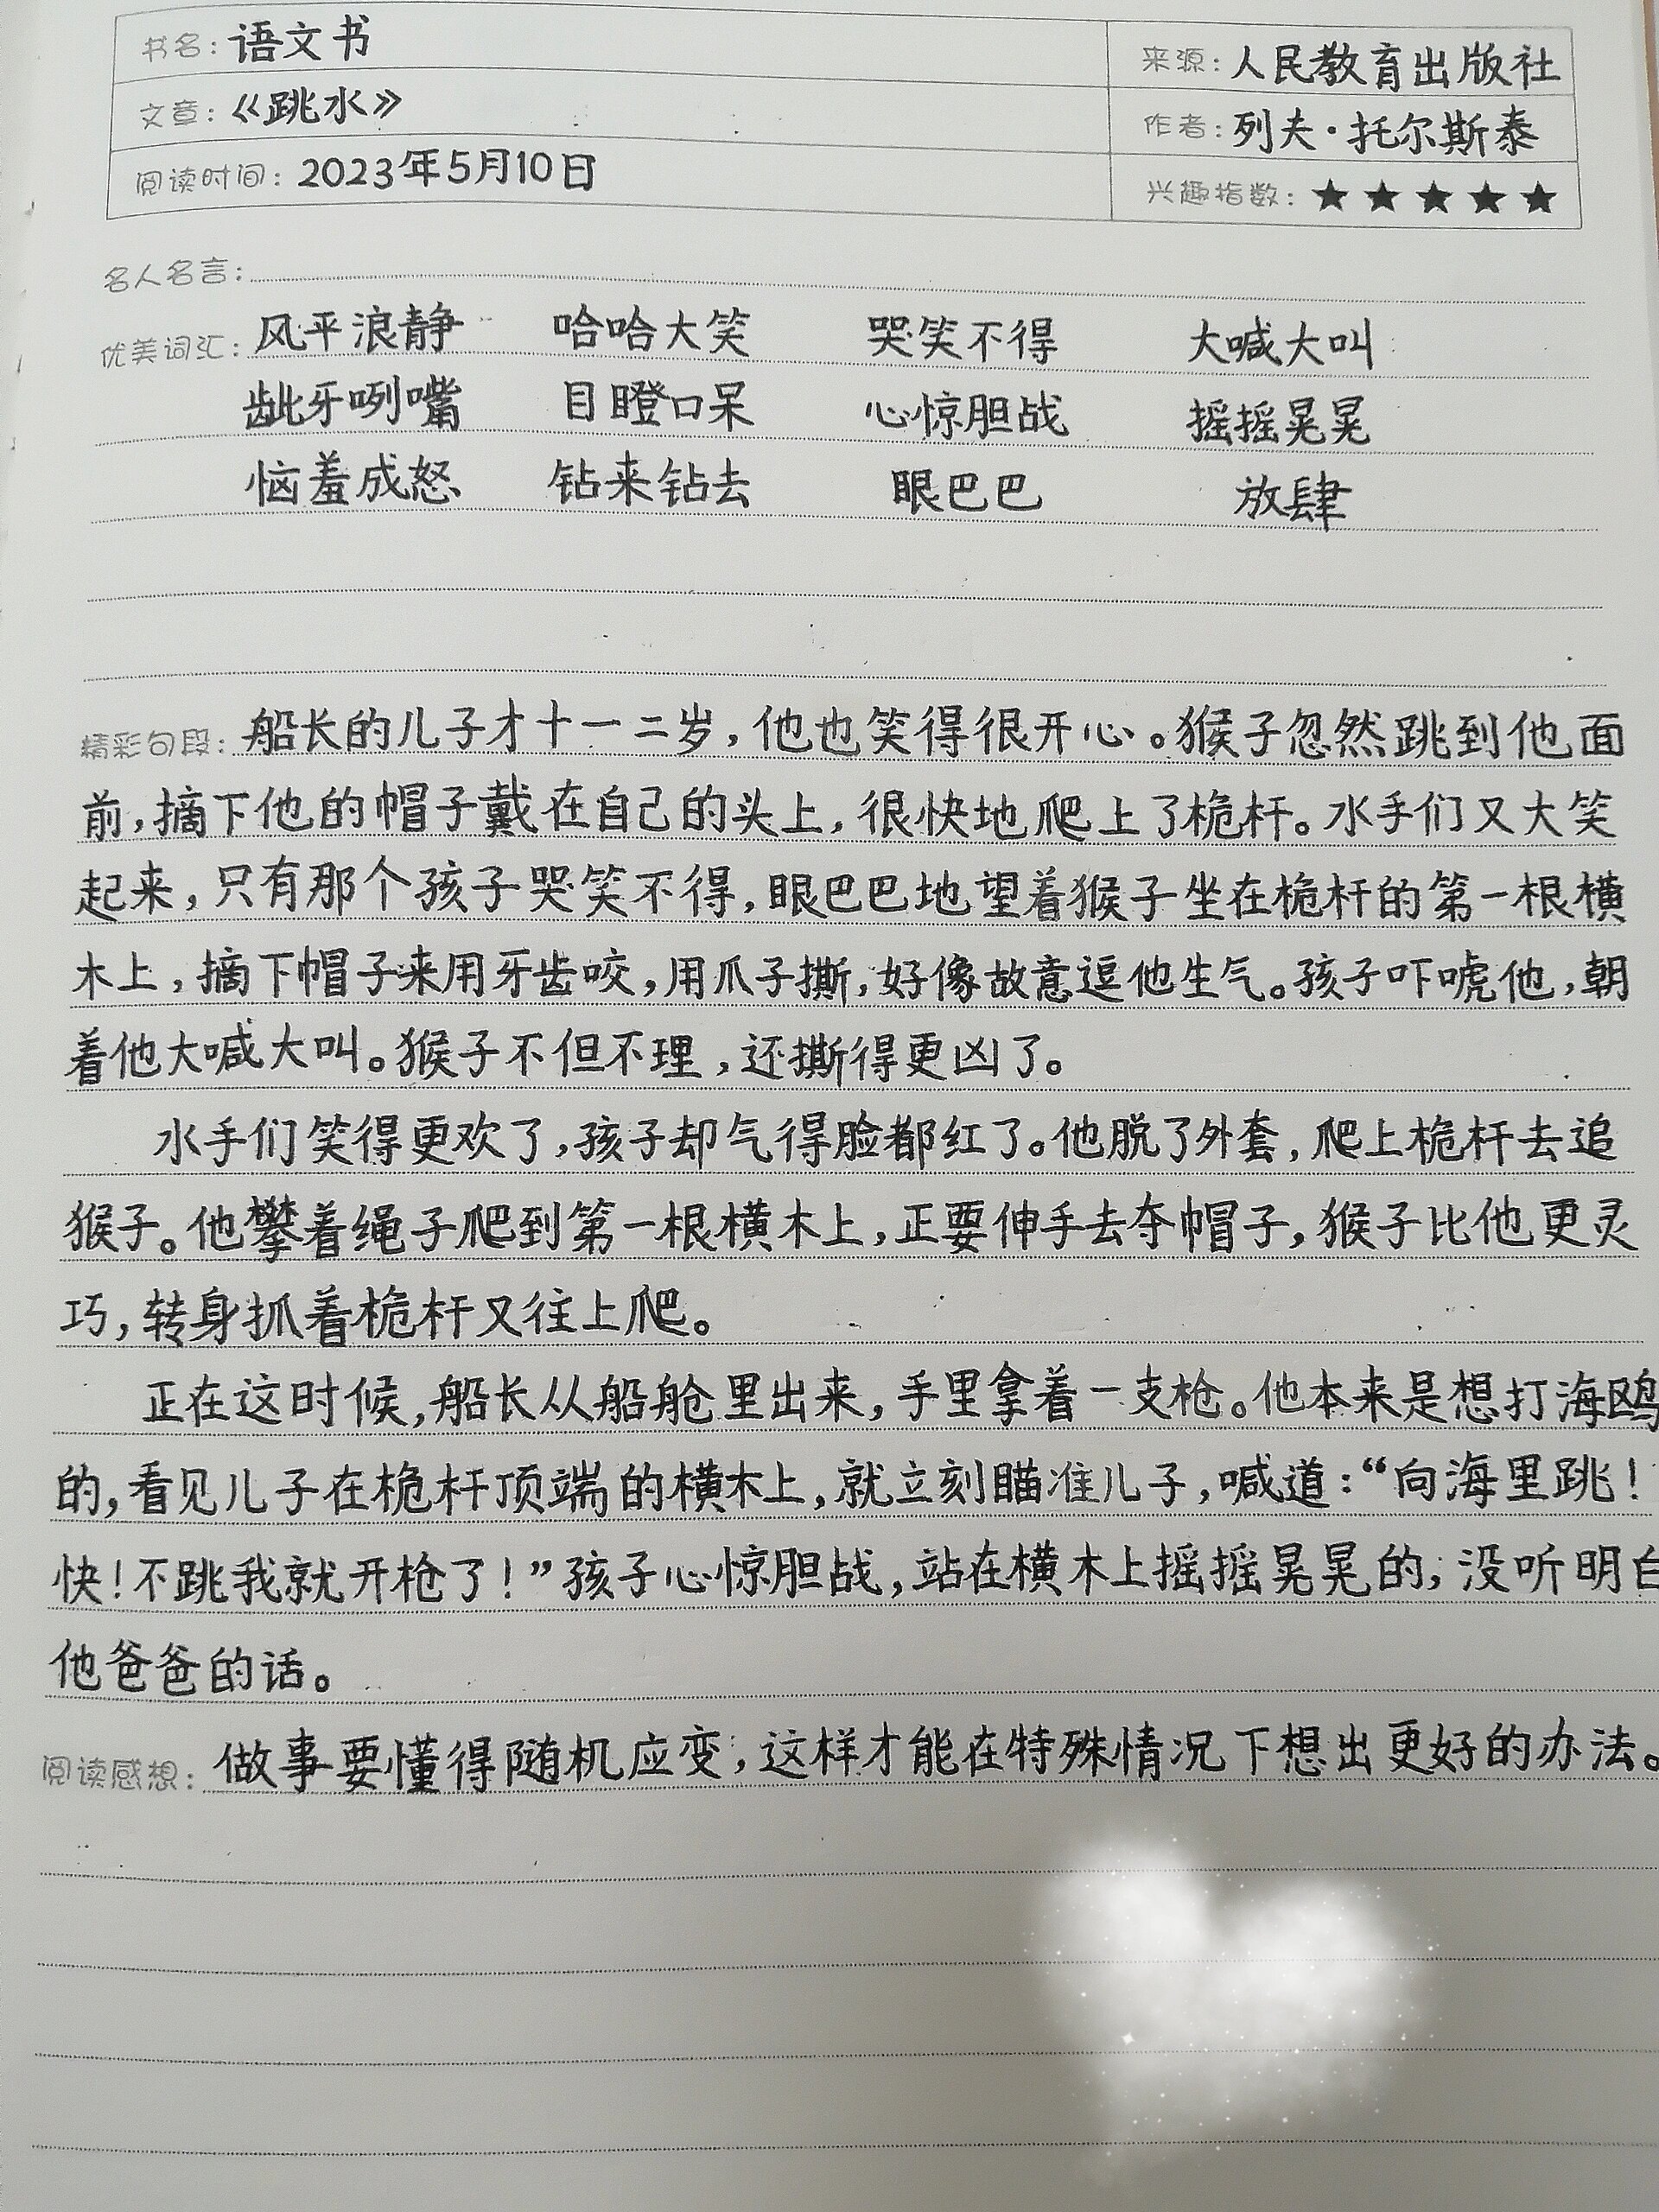 书名：语文书
来源：人民教育出版社
文章：《跳水》
作者：列夫·托尔斯泰
阅读时间：2023年5月10日
兴趣指数：★★★★★
名人名言：
优美词汇：风平浪静 哈哈大笑 哭笑不得 大喊大叫
龇牙咧嘴 目瞪口呆 心惊胆战 摇摇晃晃
恼羞成怒 钻来钻去 眼巴巴 放肆
精彩句段：船长的儿子才十一二岁，他也笑得很开心。猴子忽然跳到他面
前，摘下他的帽子戴在自己的头上，很快地爬上了桅杆。水手们又大笑
起来，只有那个孩子哭笑不得，眼巴巴地望着猴子坐在桅杆的第一根横
木上，摘下帽子来用牙齿咬，用爪子撕，好像故意逗他生气。孩子吓唬他，朝
着他大喊大叫。猴子不但不理，还撕得更凶了。
水手们笑得更欢了，孩子却气得脸都红了。他脱了外套，爬上桅杆去追
猴子。他攀着绳子爬到第一根横木上，正要伸手去夺帽子，猴子比他更灵
巧，转身抓着桅杆又往上爬。
正在这时候，船长从船舱里出来，手里拿着一支枪。他本来是想打海鸥
的，看见儿子在桅杆顶端的横木上，就立刻瞄准儿子，喊道：“向海里跳！
快！不跳我就开枪了！”孩子心惊胆战，站在横木上摇摇晃晃的，没听明白
他爸爸的话。
阅读感想：做事要懂得随机应变，这样才能在特殊情况下想出更好的办法。